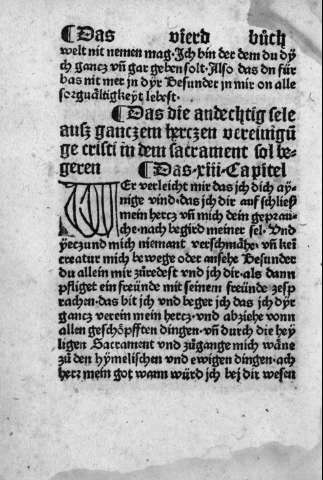 ¶Das vierd bůch
welt nit nemen mag·Ich bin der dem du dÿ
ch gancz vn̄ gar geben solt·Also das dn für
bas nit mer in dÿr Besunder in mir on alle
sorguåltigkeyt lebest·
¶Das die andechtig sele
ausz ganczem herczen vereinigū
ge cristi in dem sacrament sol be-
geren ¶Das·xiii·Capitel
WEr verleicht mir das jch dich aÿ-
nige vind·das jch dir auf schließ
mein hercz vn̄ mich dein geprau-
che·nach begird meiner sel·Vnd
yeczund mich niemant verschmåhe·vn̄ kei
creatur mich bewege oder ansehe Besunder
du allein mir zůredest vnd jch dir·als dann
pfliget ein freünde mit seinem freünde zesp
rachen·das bit jch vnd beger jch das jch dÿr
gancz verein mein hercz·vnd abziehe vonn
allen geschöpfften dingen·vn̄ durch die heÿ
ligen Sacrament vnd zůgange mich wåne
zů den hÿmelischen vnd ewigen dingen·ach
herz mein got wann würd jch bei dir wesen